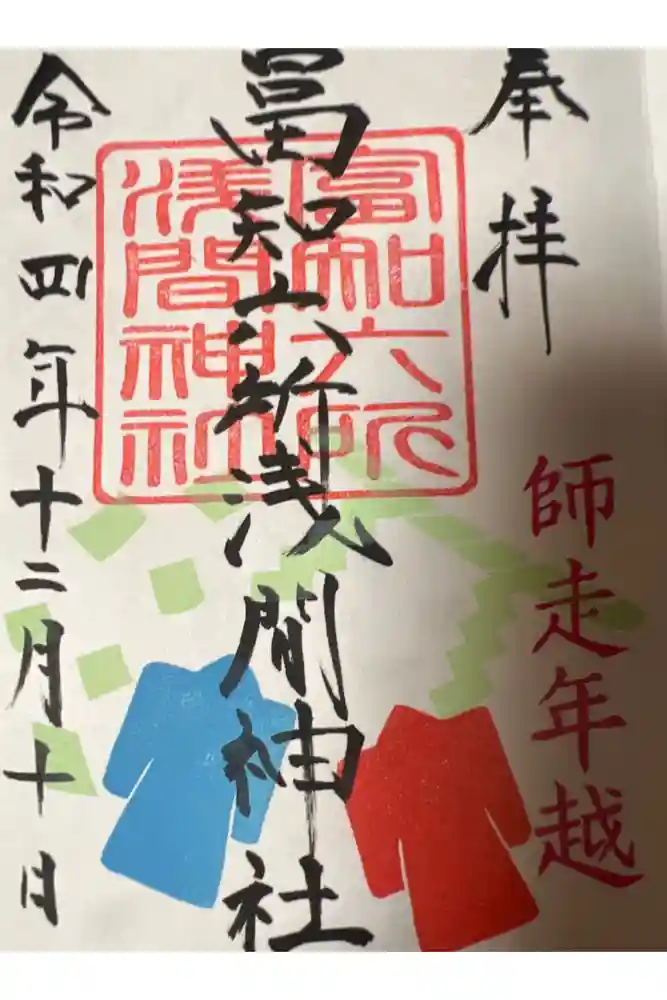 奉拝
師走年越
冨知六所浅間神社
富知六所
浅間神社
令和四年十二月十日